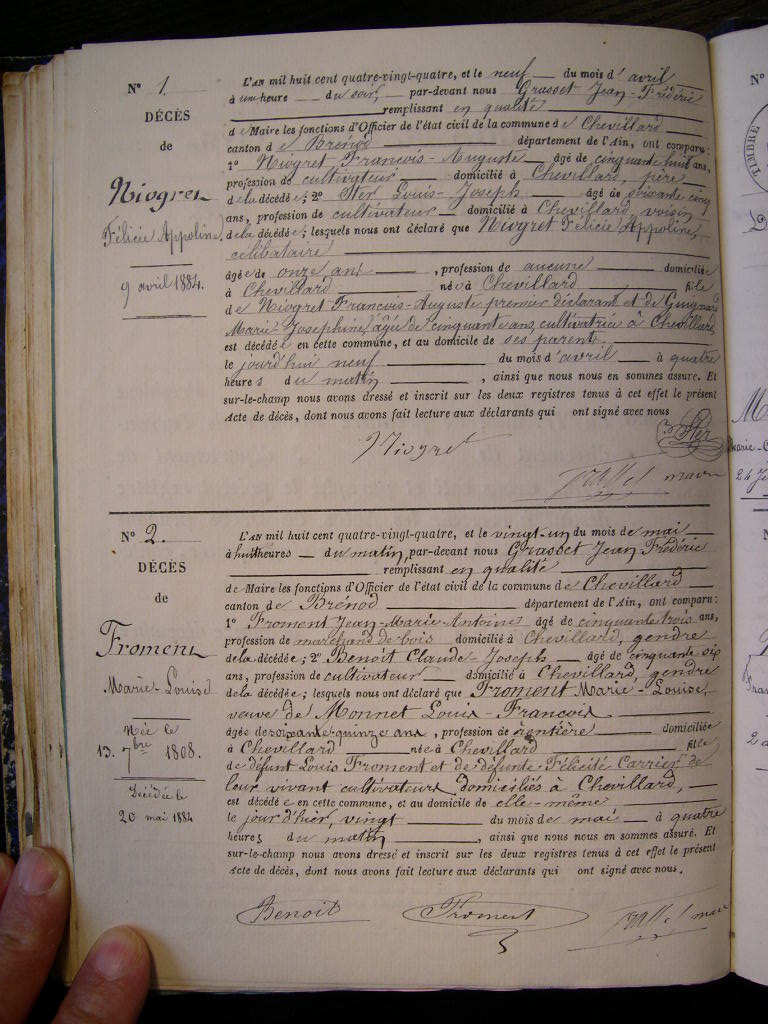 N° 1
DÉCÈS
de
Niogret
Félicie Appoline
9 avril 1884.
L'AN mil huit cent quatre-vingt-quatre, et le neuf du mois d'avril
à une heure du soir, par-devant nous Grasset Jean-Frédéric
remplissant en qualité
de Maire les fonctions d'Officier de l'état civil de la commune de Chevillard
canton de Brénod département de l'Ain, ont comparu:
1° Niogret François-Auguste âgé de cinquante huit ans,
profession de cultivateur domicilié à Chevillard, père
de la décédée; 2° Ster Louis-Joseph âgé de soixante cinq
ans, profession de cultivateur domicilié à Chevillard, voisin
de la décédée; lesquels nous ont déclaré que Niogret Félicie Appoline,
célibataire
âgée de onze ans, profession de aucune domiciliée
à Chevillard née à Chevillard fille
de Niogret François-Auguste premier déclarant et de
Marie Josephine, âgée de cinquante ans, cultivatrice à Chevillard
est décédée en cette commune, et au domicile de ses parents
le jourd'hui neuf du mois d'avril à quatre
heures du matin, ainsi que nous nous en sommes assuré. Et
sur-le-champ nous avons dressé et inscrit sur les deux registres tenus à cet effet le présent
Acte de décès, dont nous avons fait lecture aux déclarants qui ont signé avec nous
Niogret Ster
maire
N° 2.
DÉCÈS
de
Froment
Marie-Louise
Née le
13. 7bre 1808.
Décédée le
20 mai 1884
L'AN mil huit cent quatre-vingt-quatre, et le vingt-un du mois de mai
à huit heures du matin, par-devant nous Grasset Jean Frédéric
remplissant en qualité
de Maire les fonctions d'Officier de l'état civil de la commune de Chevillard
canton de Brénod département de l'Ain, ont comparu:
1° Froment Jean-Marie-Antoine âgé de cinquante trois ans,
profession de marchand de bois domicilié à Chevillard, gendre
de la décédée; 2° Benoît Claude-Joseph âgé de cinquante six
ans, profession de cultivateur domicilié à Chevillard, gendre
de la décédée; lesquels nous ont déclaré que Froment Marie-Louise,
veuve de Monnet Louis-François
âgée de soixante-quinze ans, profession de rentière domiciliée
à Chevillard née à Chevillard fille
de défunt Louis Froment et de défunte Félicité Carrier de
leur vivant cultivateurs domiciliés à Chevillard,
est décédée en cette commune, et au domicile de elle-même
le jour d'hier, vingt du mois de mai à quatre
heures du matin, ainsi que nous nous en sommes assuré. Et
sur-le-champ nous avons dressé et inscrit sur les deux registres tenus à cet effet le présent
Acte de décès, dont nous avons fait lecture aux déclarants qui ont signé avec nous.
Benoit Froment maire